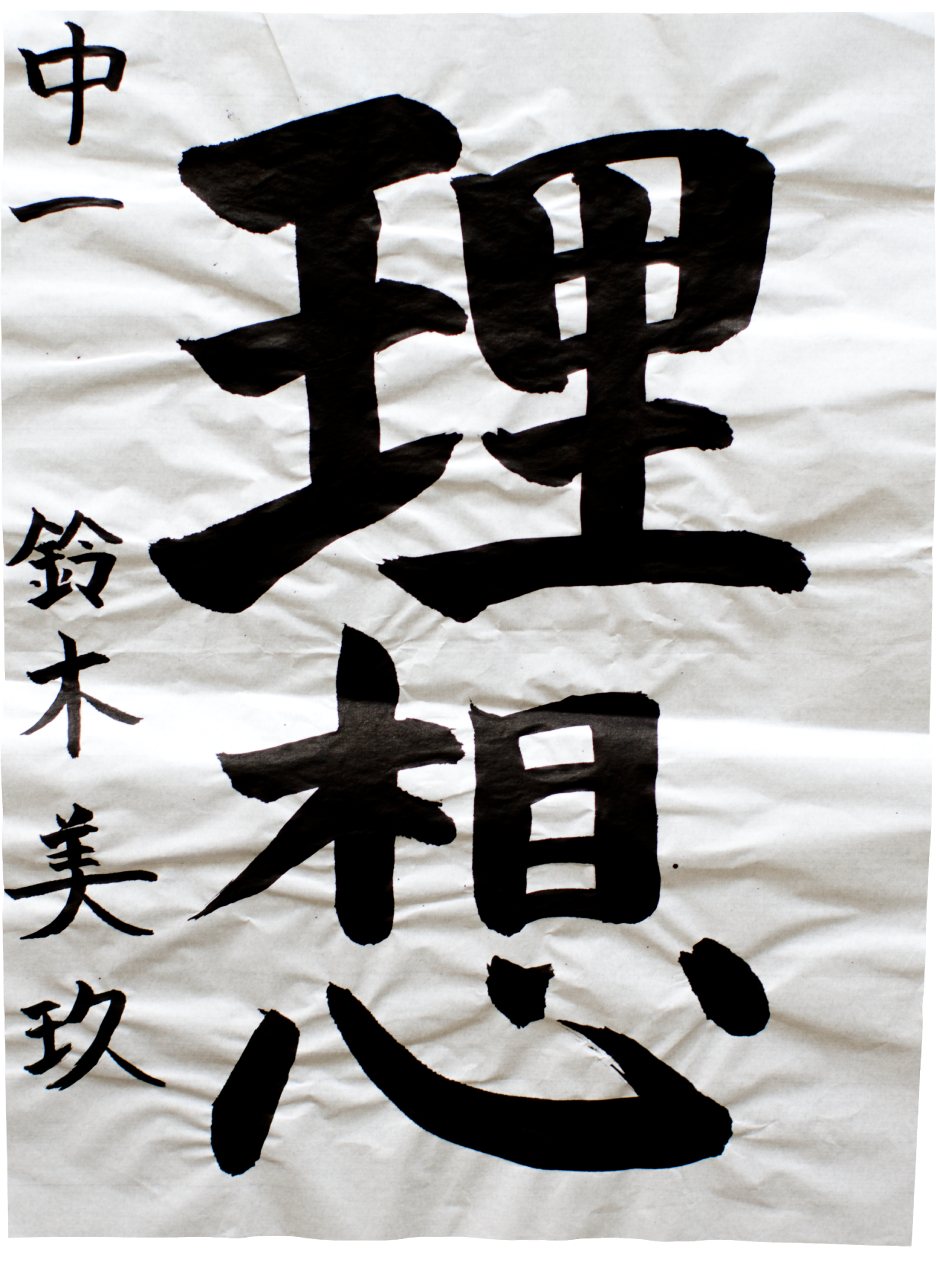 理想
中一 鈴木美玖